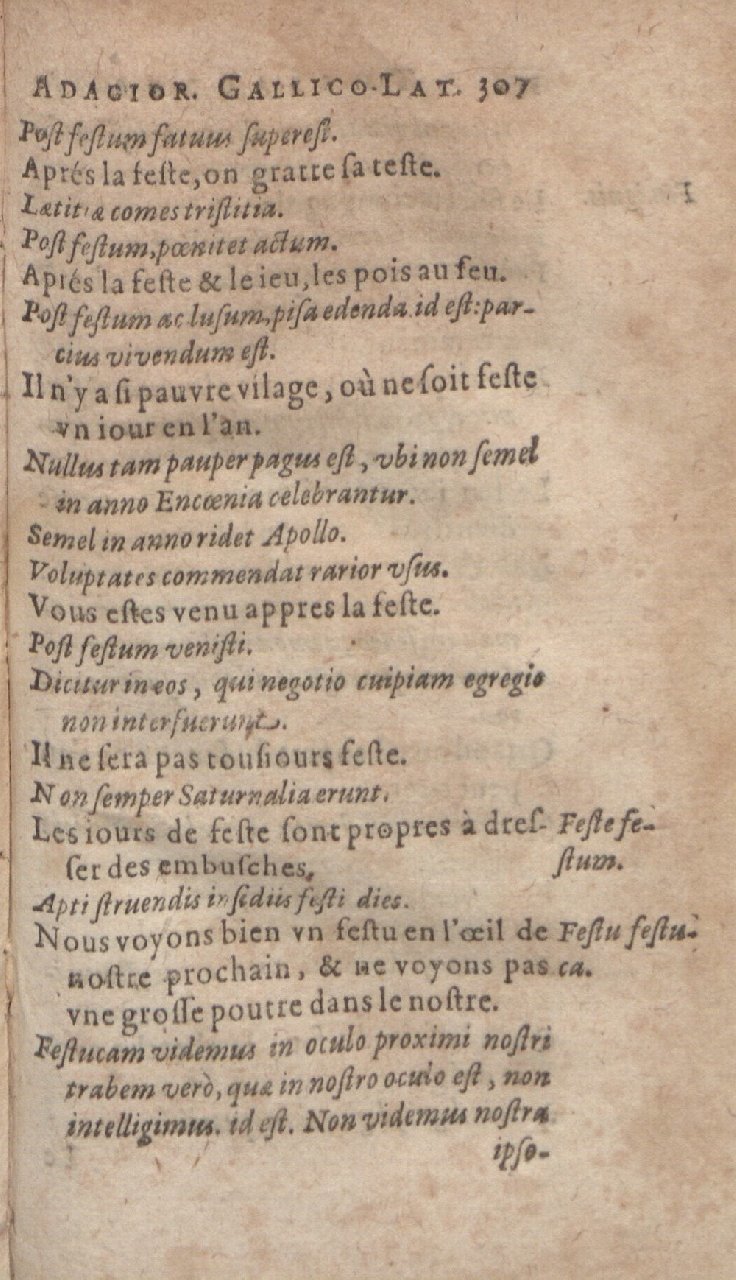 ADAGIOR. GALLICO-LAT. 307
Post festum fatuus superest.
Aprés la feste, on gratte sa teste.
Lætitiæ comes tristitia.
Post festum, pœnitet actum.
Aprés la feste & le ieu, les pois au feu.
Post festum ac lusum, pisa edenda. id est: par-
cius vivendum est.
Il n'y a si pauvre vilage, où ne soit feste
vn iour en l'an.
Nullus tam pauper pagus est, vbi non semel
in anno Encœnia celebrantur.
Semel in anno ridet Apollo.
Voluptates commendat rarior vsus.
Vous estes venu appres la feste.
Post festum venisti.
Dicitur in eos, qui negotio cuipiam egregio
non interfuerunt.
Il ne sera pas tousiours feste.
Non semper Saturnalia erunt.
Les iours de feste sont propres à dres- Feste fe-
ser des embusches. stum.
Apti struendis insidiis festi dies.
Nous voyons bien vn festu en l'œil de Festu festu-
nostre prochain, & ne voyons pas ca.
vne grosse poutre dans le nostre.
Festucam videmus in oculo proximi nostri
trabem verò, quæ in nostro oculo est, non
intelligimus. id est. Non videmus nostra
ipso-